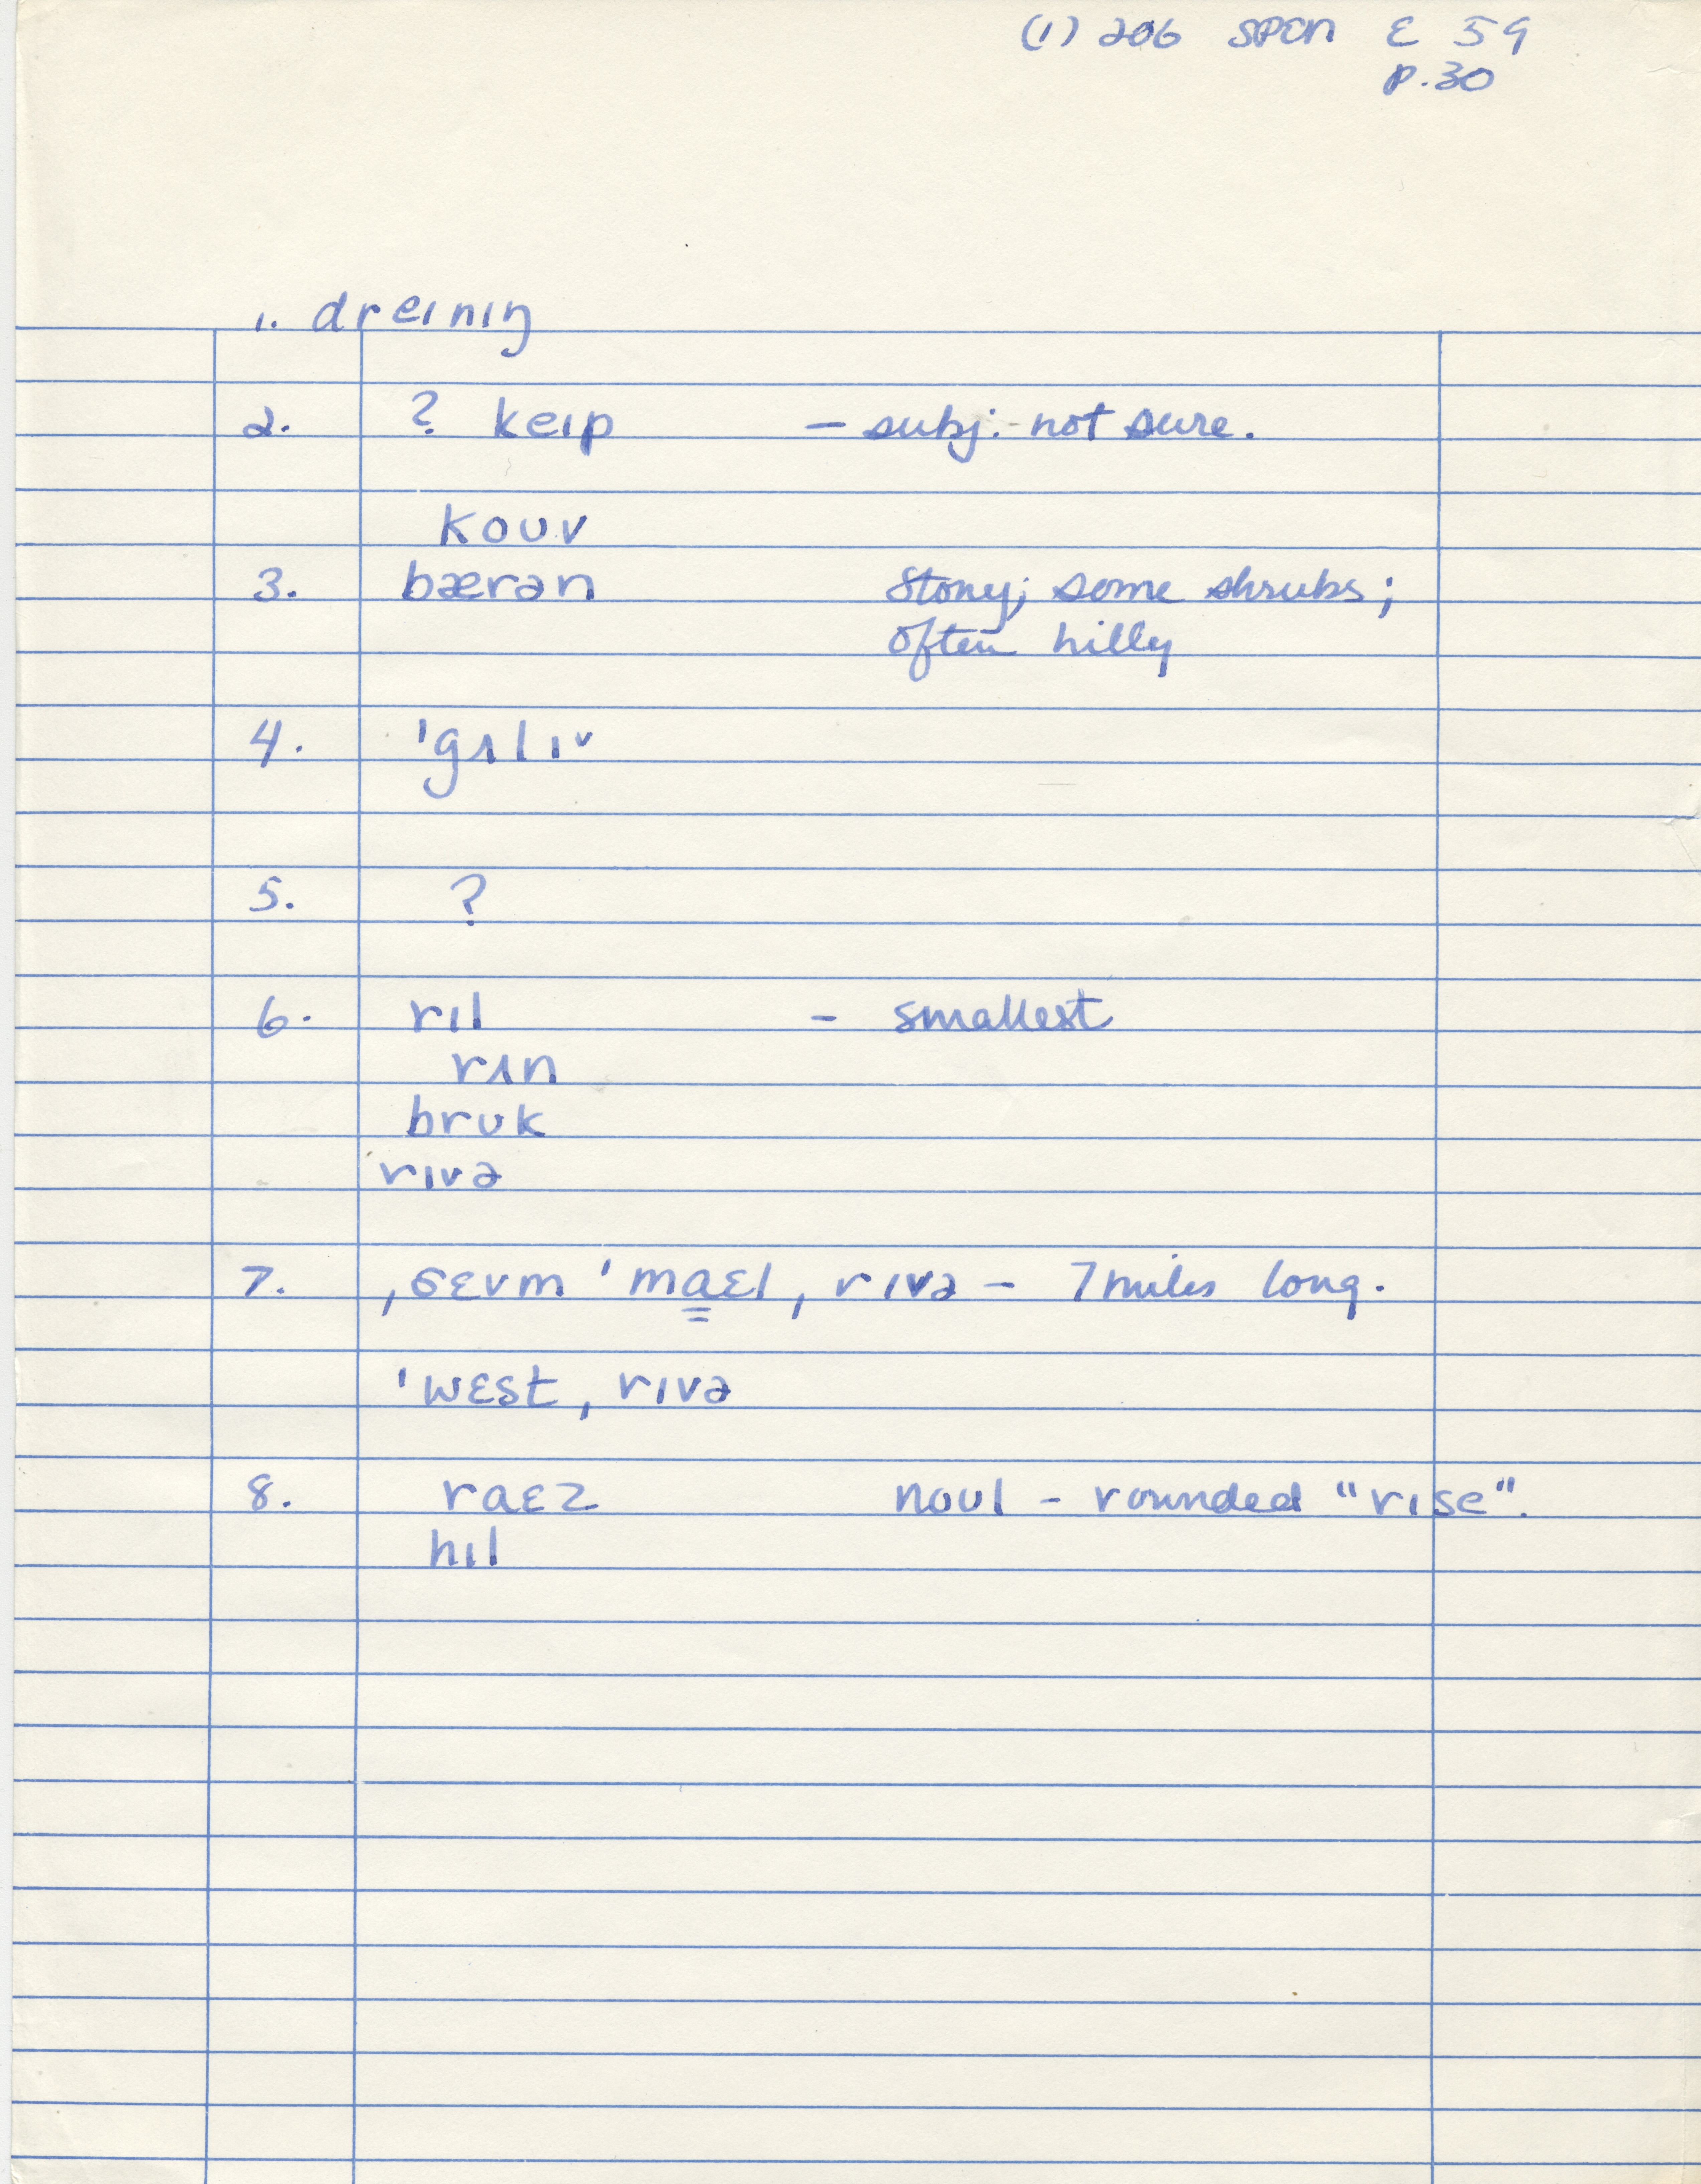 (1) 206 SPEN E 59
p.30
1. dreɪnɪŋ
2. ? keɪp — subj. not sure.
koʊv
3. bærən Stony; some shrubs;
often hilly
4. 'gʌlɪ˅
5. ?
6. rɪl - smallest
rʌn
brʊk
rɪvə
7. ˌsɛvm 'ma̳ɛl ˌrɪvə – 7 miles long.
'wɛst ˌrɪvə
8. raɛz noʊl - rounded "rise".
hɪl